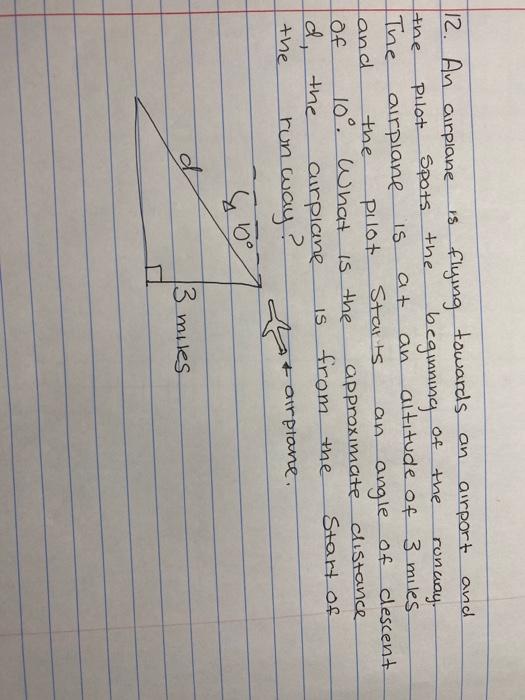 12. An airplane is flying towards an airport and
the pilot spots the beginning of the runway
The airplane is at an altitude of 3 miles
and the pilot starts an angle of descent
of 10°. What is the approximate distance
d, the airplane is from the start of
the runway?
airplane.
10°
d
3 miles